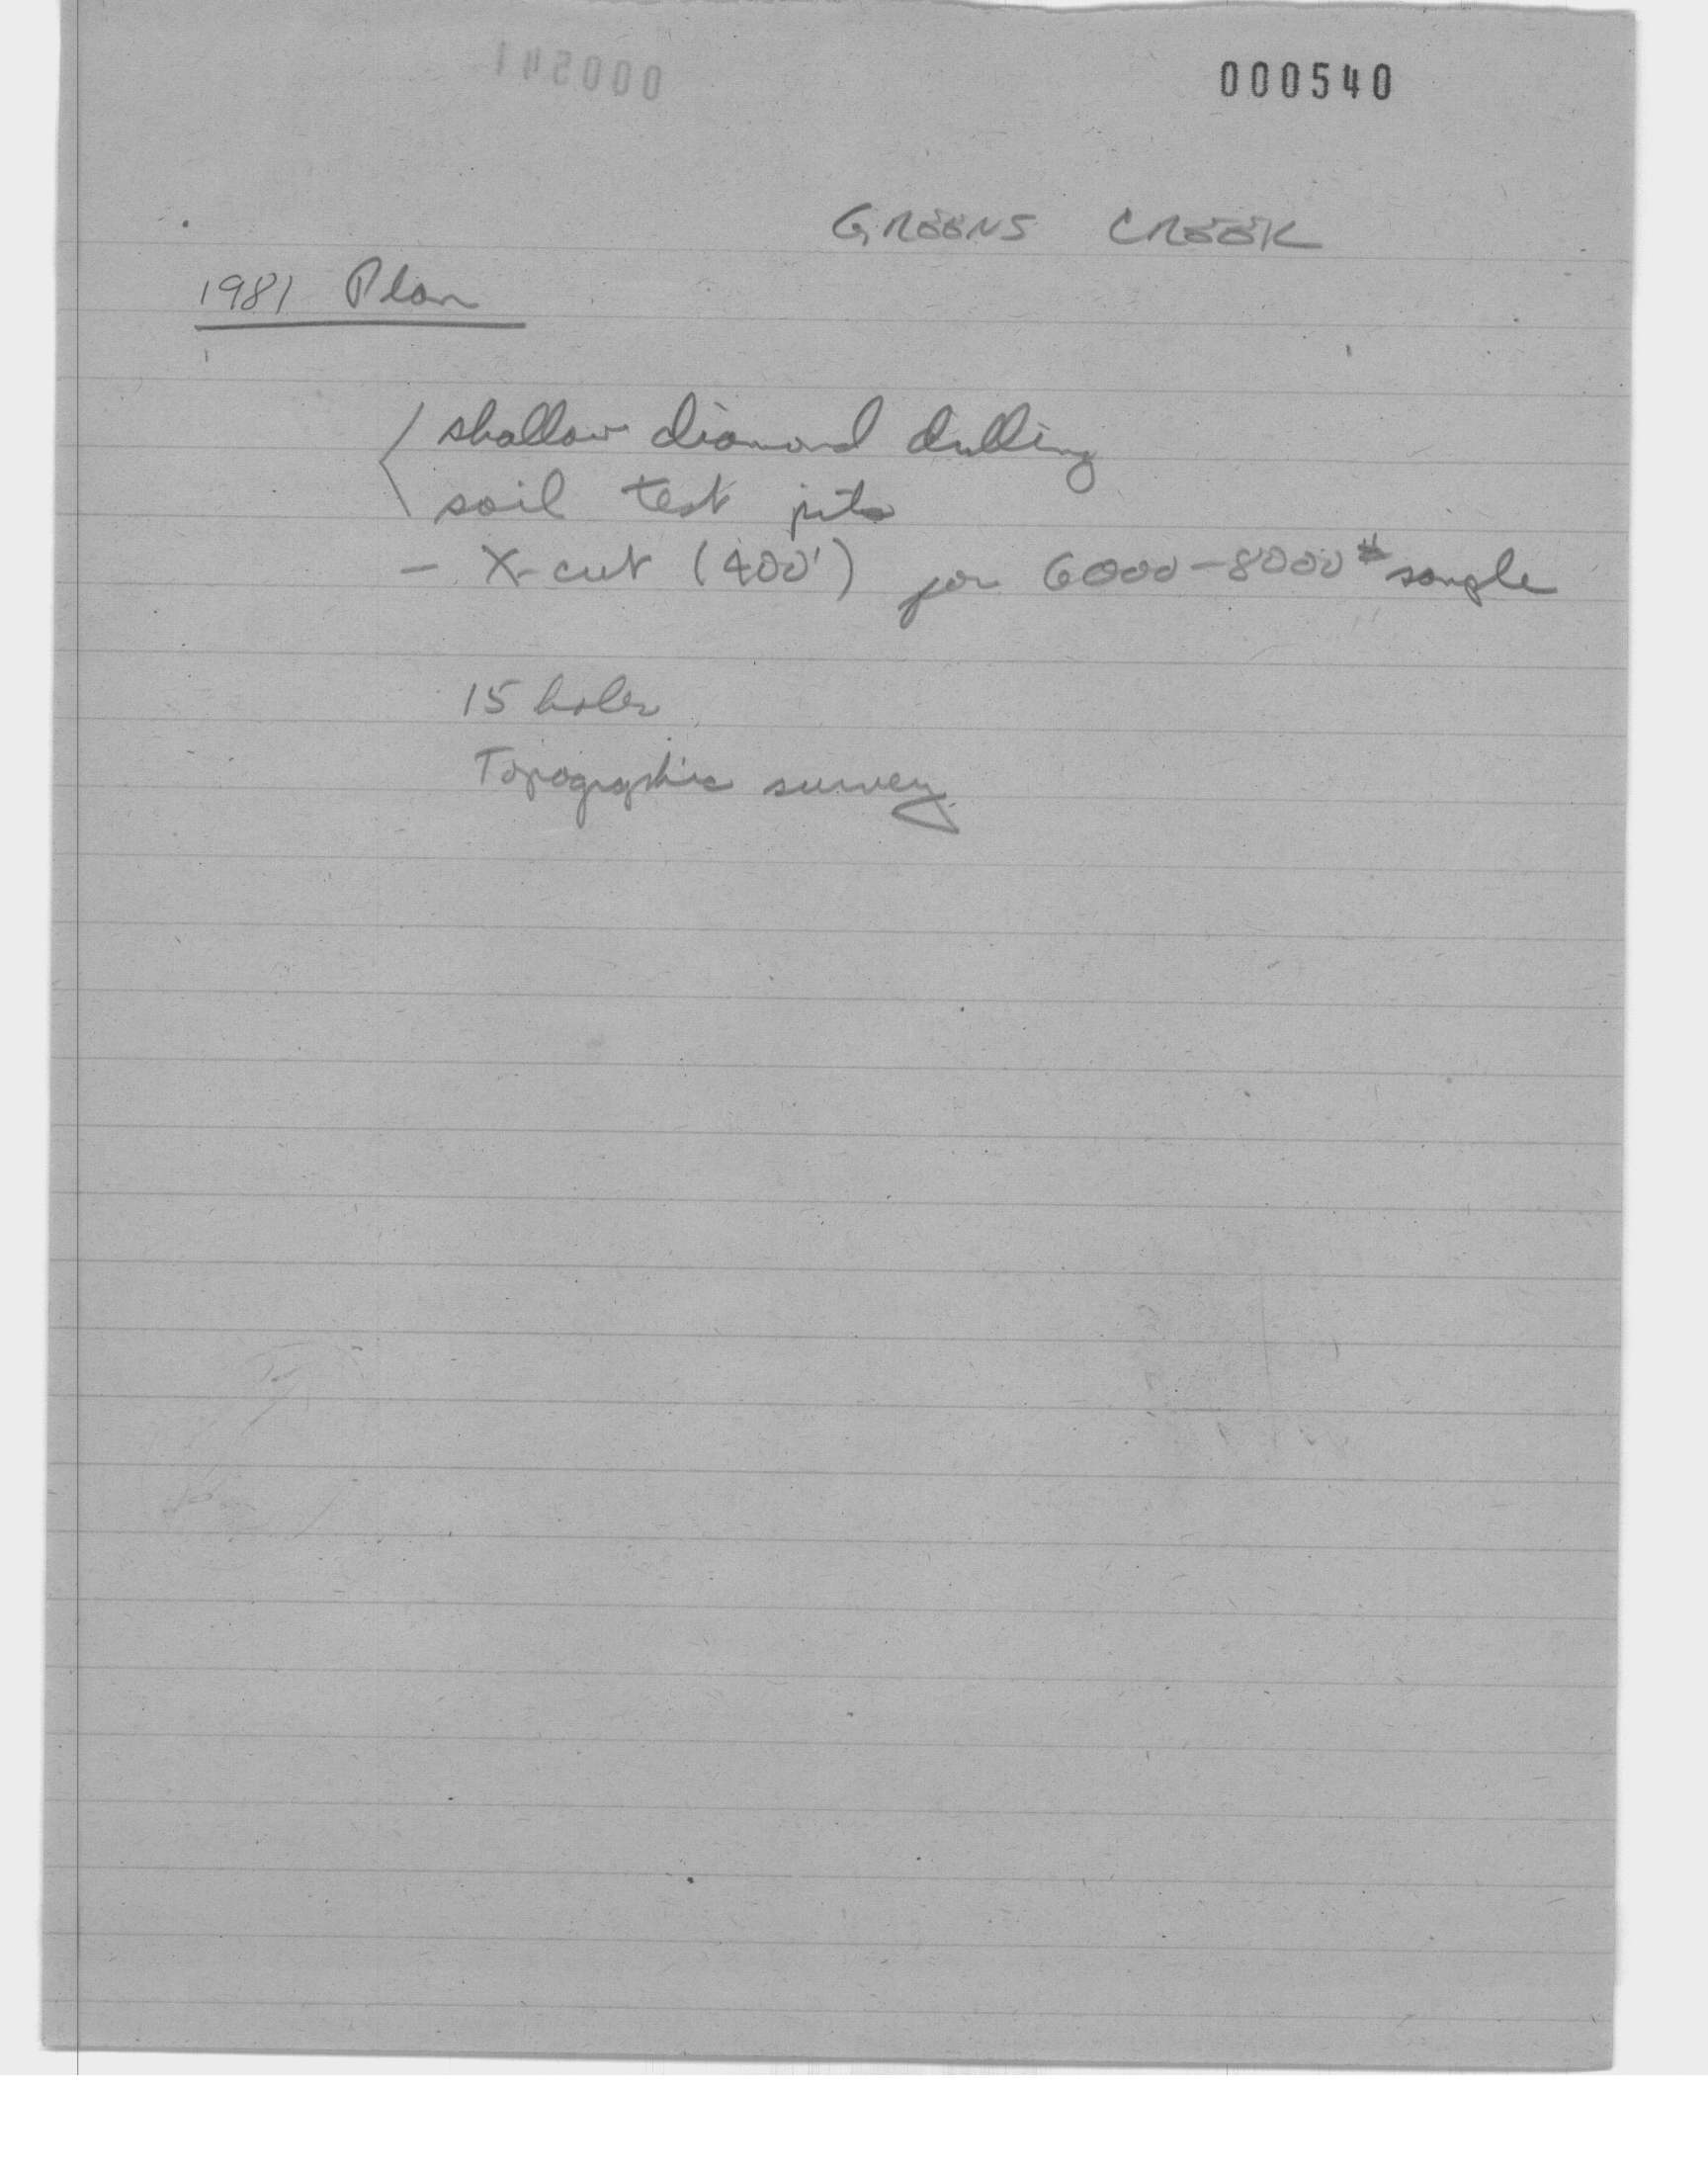 000541
000540
GREENS CREEK
1981 Plan
shallow diamond drilling
soil test pits
- X-cut (400') for 6000-8000# sample
15 holes
Topographic survey